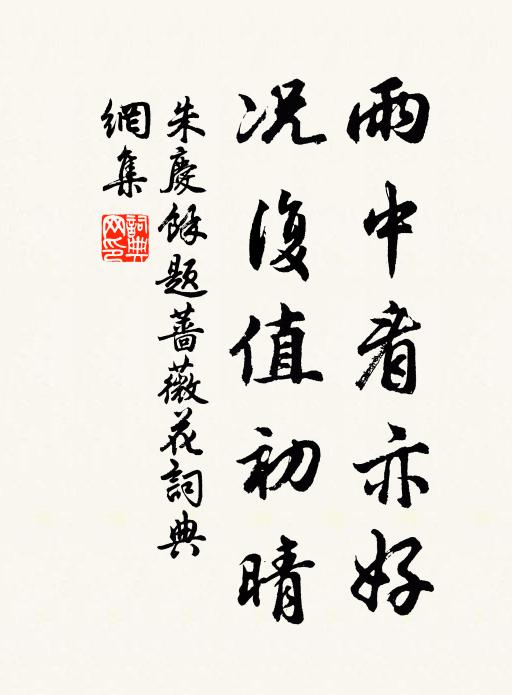 雨中看亦好
况復值初晴
朱慶餘題薔薇花詞典
網集
詞典网印